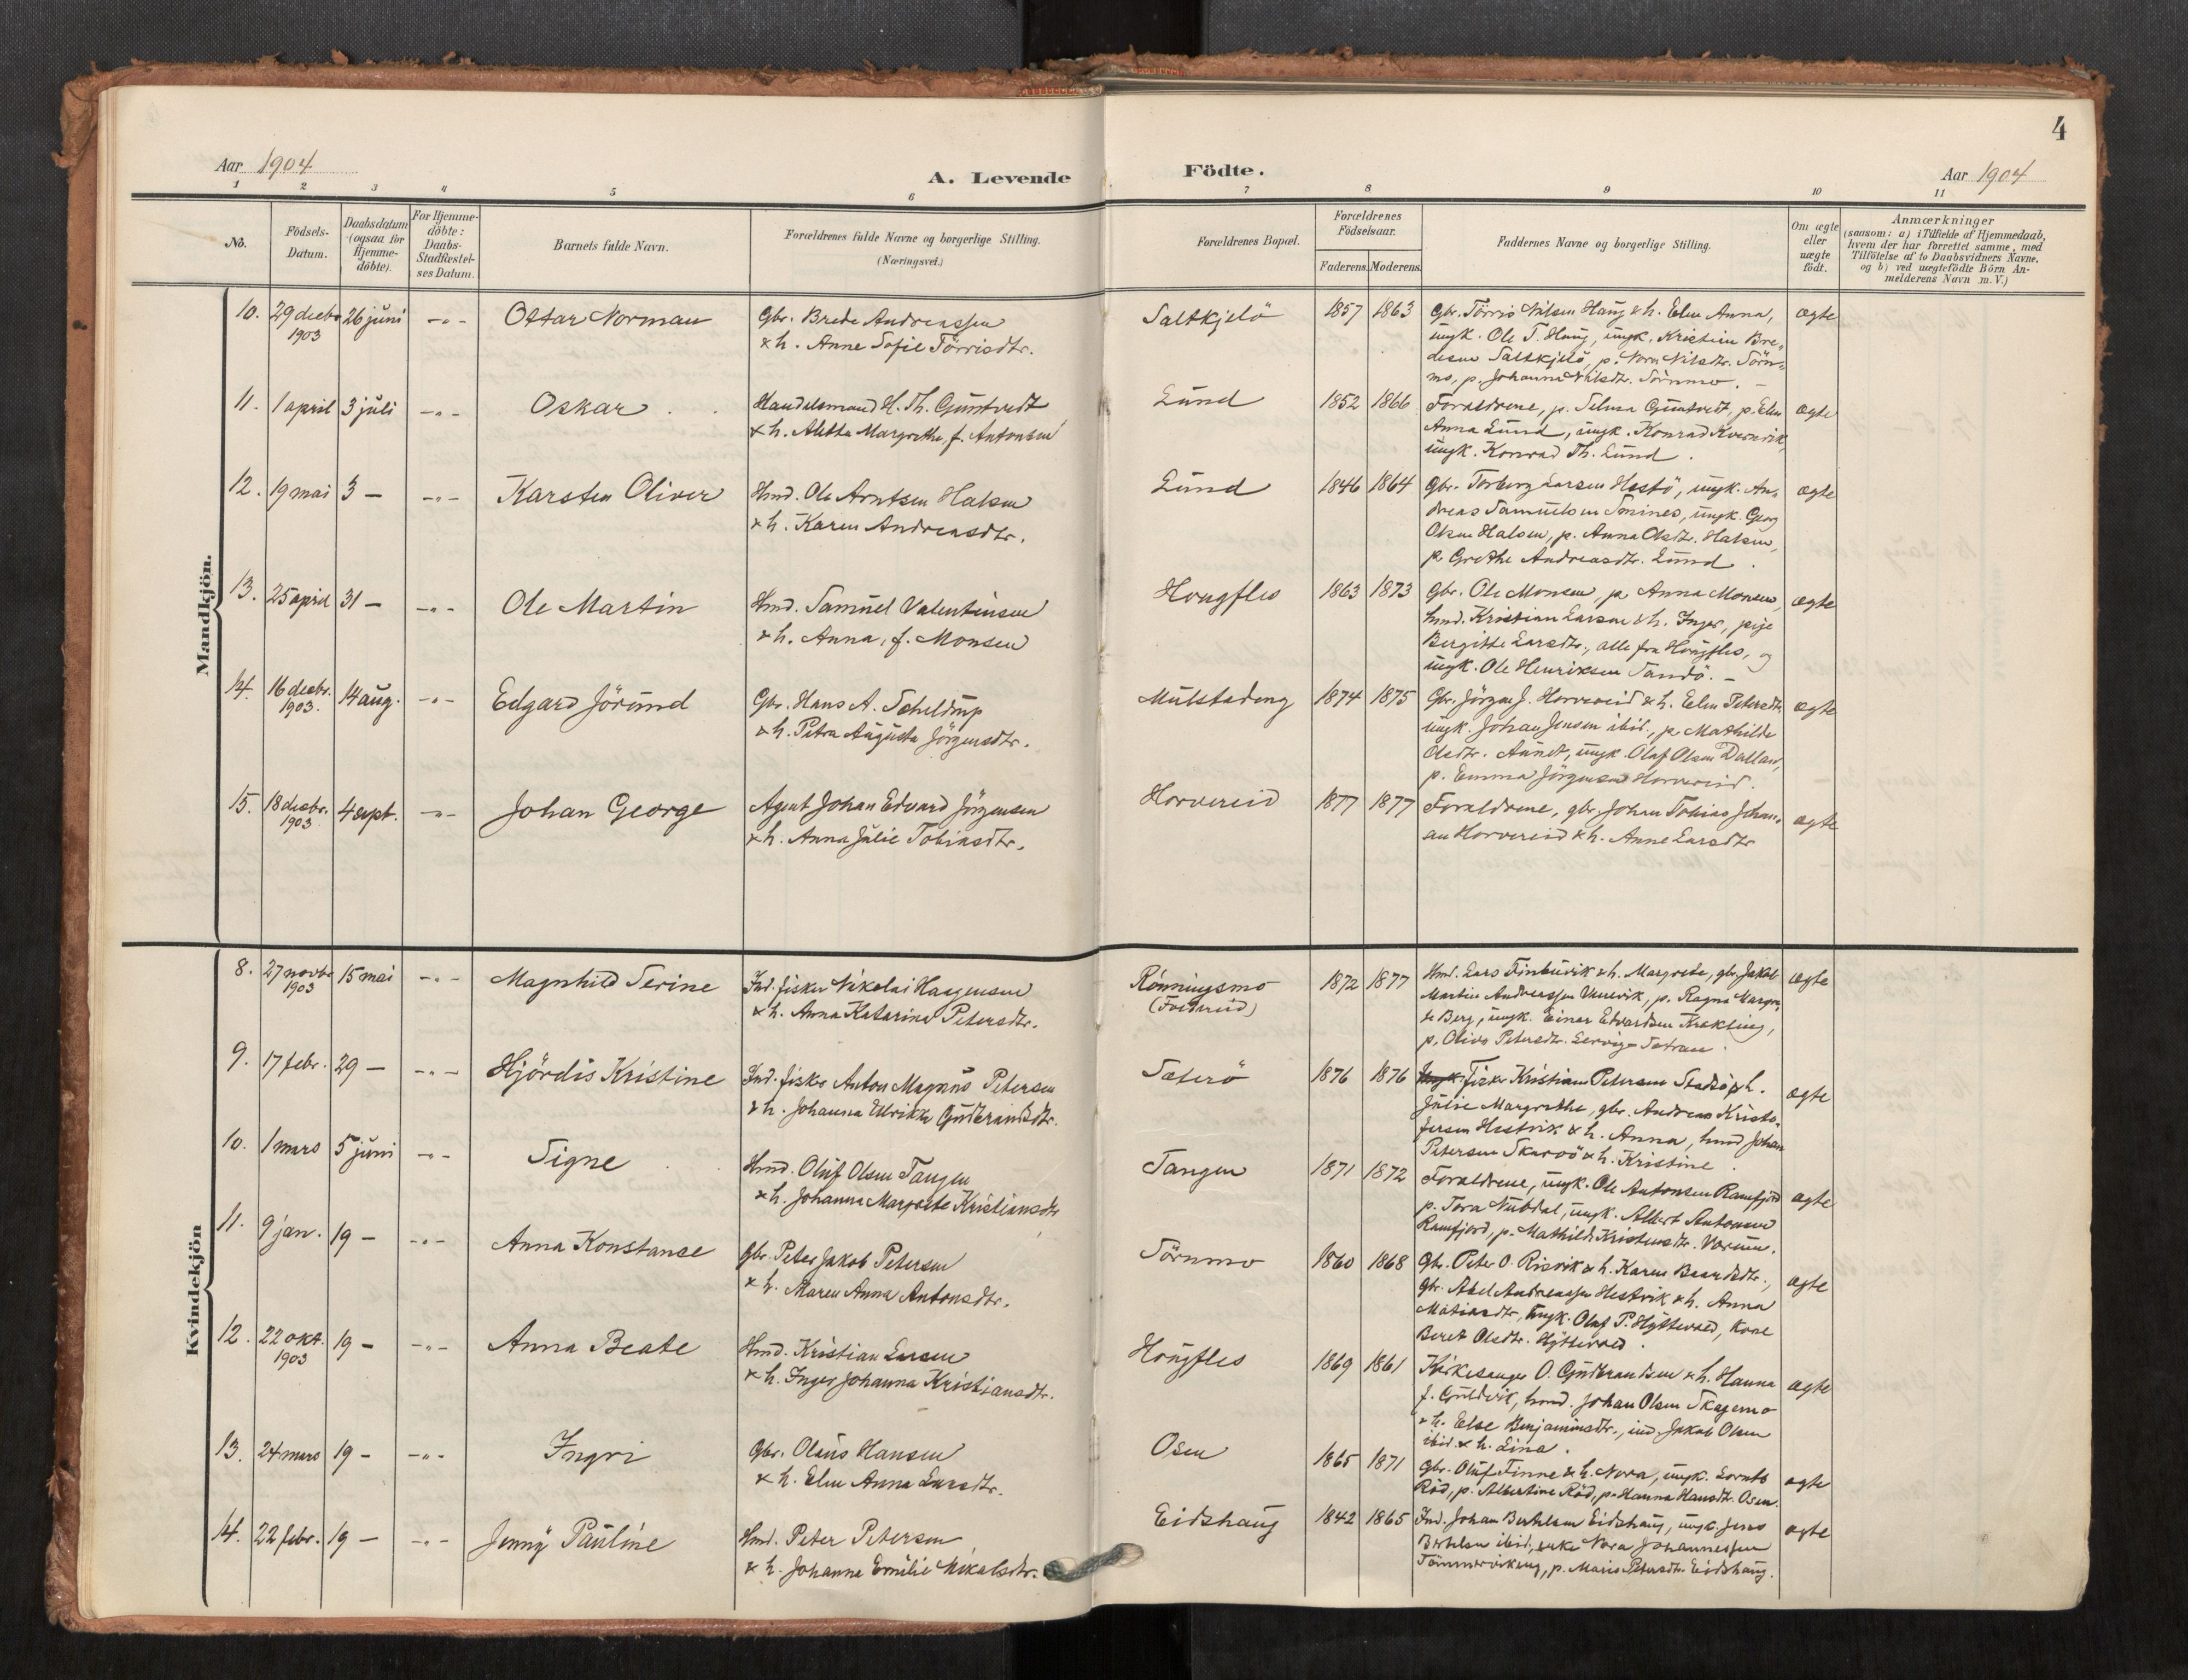 4
Aar 1904
A. Levende Födte.
Aar 1904
1 2 3 4 5 6 7 8 9 10 11
No.
Födsels-
Datum.
Daabsdatum
(ogsaa for
Hjemme-
döbte).
For Hjemme-
döbte:
Daabs-
Stadfæstel-
ses Datum.
Barnets fulde Navn.
Forældrenes fulde Navne og borgerlige Stilling.
(Næringsvei.)
Forældrenes Bopæl.
Forældrenes
Födselsaar.
Faderens. Moderens.
Faddernes Navne og borgerlige Stilling.
Om ægte
eller
uægte
födt.
Anmærkninger
(saasom: a) i Tilfælde af Hjemmedaab,
hvem der har forrettet samme, med
Tilföielse af to Daabsvidners Navne.
og b) ved uægtefödte Börn An-
melderens Navn m.V.)
Mandkjön.
10. 29 decbr 1903 26 juni -"- Ottar Norman
Gbr. Brede Andreassen
& h. Anne Sofie Törrisdtr.
Saltkjelö 1857 1863
Gbr. Törris Nilsen Haug & h. Elen Anna,
ungk. Ole T. Haug, ungk. Kristian Bre-
desen Saltkjelö, p. Nora Nilsdtr. Törn-
mo, p. Johanna Nilsdtr. Törnmo. -
ægte
11. 1 april 3 juli -"- Oskar
Handelsmand H. Th. Guntvedt
& h. Alettha Margrethe, f. Antonsen
Lund 1852 1866
Forældrene, p. Selma Guntvedt, p. Elen
Anna Lund, ungk. Konrad Kvernvik,
ungk. Konrad Th. Lund.
ægte
12. 19 mai 3 - -"- Karsten Oliver
Hmd. Ole Arntsen Halsen
& h. Karen Andreasdtr.
Lund 1846 1864
Gbr. Torberg Larsen Hestö, ungk. An-
dreas Samuelsen Smines, ungk. Georg
Olsen Halsen, p. Anna Olsdtr. Halsen,
p. Grethe Andreasdtr. Lund.
ægte
13. 25 april 31 - -"- Ole Martin
Hmd. Samuel Valentinsen
& h. Anna, f. Monsen
Hougfles 1863 1873
Gbr. Ole Monsen, p. Anna Monsen,
hmd. Kristian Larsen & h. Inger, pige
Bergitte Larsdtr., alle fra Hougfles, og
ungk. Ole Henriksen Sandö. -
ægte
14. 16 decbr. 1903. 14 aug. -"- Edgard Jörund
Gbr. Hans A. Scheldrup
& h. Petra Augusta Jörgensdtr.
Mulstadeng 1874 1875
Gbr. Jörgen J. Horvereid & h. Elen Petersdtr.
ungk. Johan Jensen ibid., p. Mathilde
Olsdtr. Aunet, ungk. Olaf Olsen Dallan,
p. Emma Jörgensen Horvereid.
ægte
15. 18 decbr. 1903 4 sept. -"- Johan George
Agent Johan Edvard Jörgensen
& h. Anna Julie Tobiasdtr.
Horvereid 1877 1877
Forældrene, gbr. Johan Tobias Johan-
sen Horvereid & h. Anne Larsdtr
ægte
Kvindekjön
8. 27 novbr 1903 15 mai -"- Magnhild Serine
Ind. fisker Nikolai Haagensen
& h. Anna Katarina Petersdtr.
Rönningsmo
(Foldereid)
1872 1877
Hmd. Lars Finbuvik & h. Margrete, gbr. Jakob
Martin Andreassen, p. Ragna Margre-
te Berg, ungk. Einar Edvardsen Krækling,
p. Oliva Petersdtr.
ægte
9. 17 febr. 29 - -"- Hjördis Kristine
Ind. fisker Anton Magnus Petersen
& h. Johanna Ulrikke Gudbrandsdtr.
Sæterö 1876 1876
Fisker Kristian Petersen & h.
Julie Margrethe, gbr. Andreas Kristo-
fersen Hestvik & h. Anna, hmd Johan
Petersen Skaroö & h. Kristine.
ægte
10. 1 mars 5 juni -"- Signe
Hmd. Oluf Olsen Tangen
& h. Johanna Margrete Kristiansdtr
Tangen 1871 1872
Forældrene, ungk. Ole Antonsen Ramfjord
p. Tora Nubdal, ungk. Albert Antonsen
Ramfjord, p. Mathilde Kristensdtr. Værum.
ægte
11. 9 jan. 19 - -"- Anna Konstanse
Gbr. Peter Jakob Petersen
& h. Maren Anna Antonsdtr.
Törnmo 1860 1868
Gbr. Peter O. Risvik & h. Karen Baardsdtr.,
gbr. Abel Andreassen Hestvik & h. Anna
Matiasdtr., ungk. Olaf P. Hyttevaed, kone
Beret Olsdtr. Hyttevaed.
ægte
12. 22 okt. 1903 19 - -"- Anna Beate
Hmd. Kristian Larsen
& h. Inger Johanna Kristiansdtr.
Hougfles 1869 1861
Kirkesanger O. Gudbrandsen & h. Hanna
f. Guldvik, hmd. Johan Olsen Skagemo
& h. Else Benjaminsdtr., ind. Jakob Olsen
ibid. & h. Lina.
ægte
13. 24 mars 19 - -"- Ingri
Gbr. Olaus Hansen
& h. Elen Anna Larsdtr.
Osen 1865 1871
Gbr. Oluf Finne & h. Nora, ungk. Lornts
Röd, p. Albertine Röd, p. Hanna Hansdtr. Osen.
ægte
14. 22 febr. 19 - -"- Jenny Pauline
Hmd. Peter Petersen
& h. Johanne Emilie Mikalsdtr.
Eidshaug 1842 1865
Ind. Johan Berthelsen Eidshaug, ungk. Jens
Berthelsen ibid., enke Nora Johannessen
Tömmervikeng, p. Marie Petersdtr. Eidshaug.
ægte